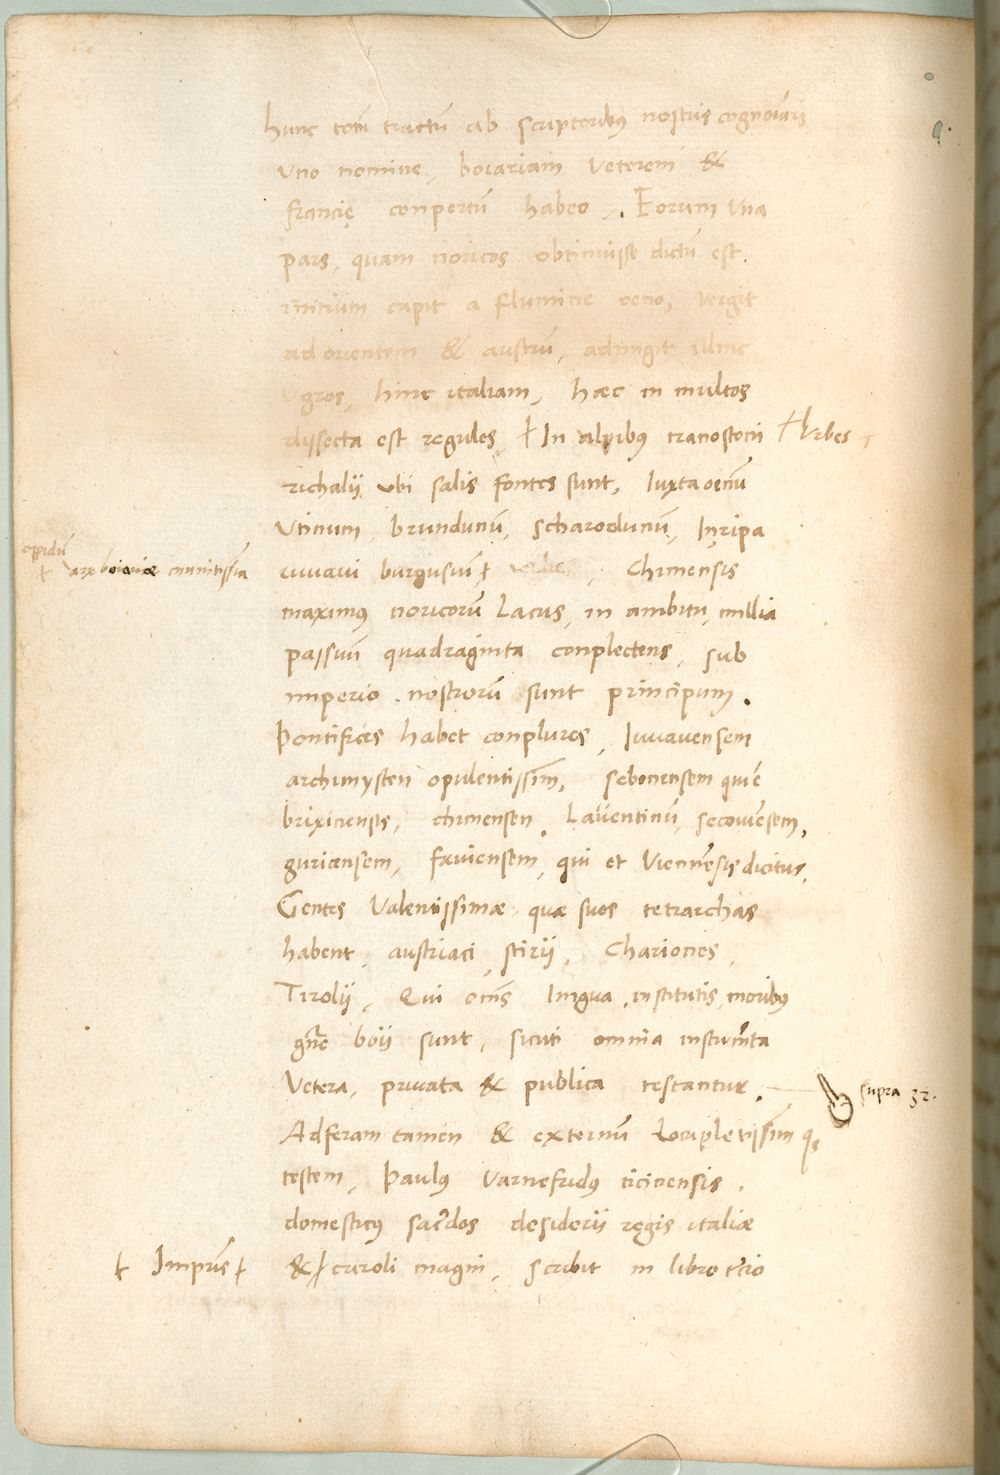 hunc totũ tractũ ab scriptoribus nostris cognoĩari
uno nomine, boiariam Veterem &
francię conpertũ habeo. Eorum Una
pars, quam noricos obtinuisse dictũ est.
initium capit a flumine oeno, Vergit
ad orientem & austrũ, adtingit illinc
Ugros, hinc italiam, hæc in multos
dissecta est regulos, ƚ In alpibus ƚ Urbes
richalii ubi salis fontes sunt, Iuxta oenũ
Utinum, brundunũ, scharodunũ, In ripa
oppidũ
ƚ arx boiariæ munitissĩa
iuvavi burgusiũ ƚ Chimensis
maximus noricorũ Lacus, in ambitu, millia
passuũ quadraginta conplectens, sub
imperio nostrorũ sunt principum.
Pontifices habet conplures, Iuvavensem
archimysten opulentissim̃, sebonensem qui ẽ
brixinensis, chimensen, Lauentinũ, secouiẽsem,
guricensem, fauiensem, qui et Viennẽsis dicitur,
Gentes Valentissimæ quæ suos tetrarchas
habent, austriaci, stirii, Chariones,
Tirolii, Qui oms̃ lingua, institutis, moribus
gñe boii sunt, sicuti omnia instrum̃ta
Vetera, privata & publica testantur.
supra 32.
Adferam tamen & externũ Locupletissim̃ q3
testem, Paulus Varnefridus ticinensis,
domesticus sac̃dos desiderii regis italiæ
ƚ Impr̃is ƚ
& ƚ caroli magni, scribit in libro t̃cio